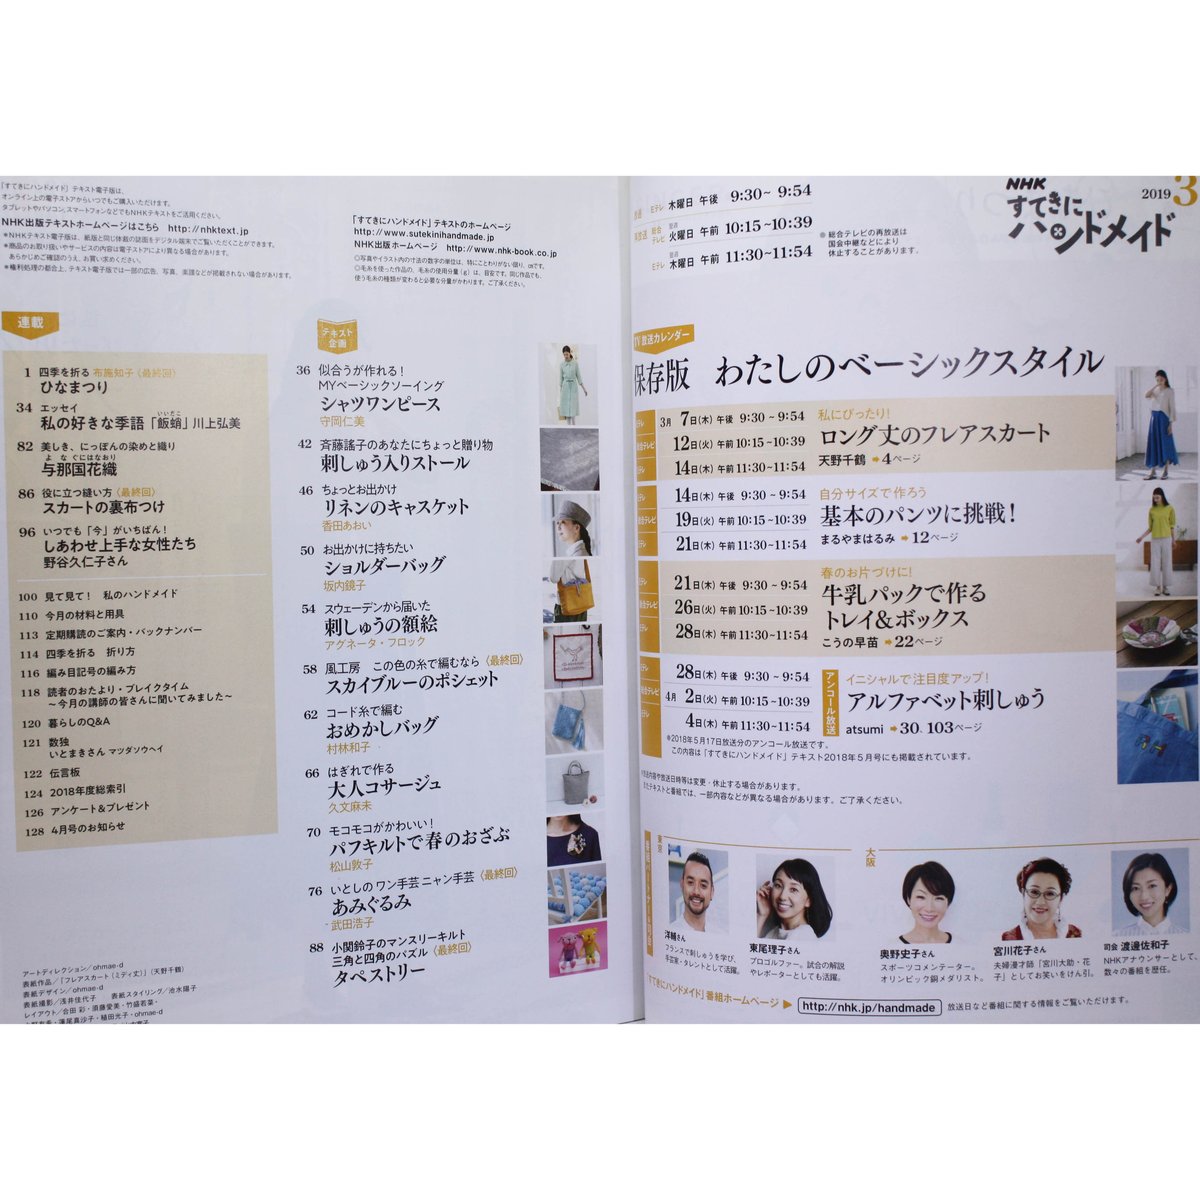 「すてきにハンドメイド」テキスト電子版は、
オンライン上の電子ストアからいつでもご購入いただけます。
タブレットやパソコン、スマートフォンなどでもNHKテキストをご活用ください。
NHK出版テキストホームページはこちら http://nhktext.jp
＊NHKテキスト電子版は、紙版と同じ体裁の誌面をデジタル端末でご覧いただくことができます。
＊商品のお取り扱いやサービスの内容は電子ストアにより異なる場合があります。
あらかじめご確認のうえ、お買い求めください。
＊権利処理の都合上、テキスト電子版では一部の広告、写真、楽譜などが掲載されない場合があります。
「すてきにハンドメイド」テキストのホームページ
http://www.sutekinihandmade.jp
NHK出版 ホームページ http://www.nhk-book.co.jp
◎写真やイラスト内の寸法の数字の単位は、特にことわりがない限り、cmです。
◎毛糸を使った作品の、毛糸の使用分量（g）は、目安です。同じ作品でも、
使う毛糸の種類が変わると必要な分量がかわります。ご了承ください。
連載
1 四季を折る 布施知子〈最終回〉
ひなまつり
34 エッセイ
私の好きな季語「飯蛸」川上弘美
いいだこ
82 美しき、にっぽんの染めと織り
よなぐにはなおり
与那国花織
86 役に立つ縫い方〈最終回〉
スカートの裏布つけ
96 いつでも「今」がいちばん！
しあわせ上手な女性たち
野谷久仁子さん
100 見て見て！ 私のハンドメイド
110 今月の材料と用具
113 定期購読のご案内・バックナンバー
114 四季を折る 折り方
116 編み目記号の編み方
118 読者のおたより・ブレイクタイム
～今月の講師の皆さんに聞いてみました～
120 暮らしのQ&A
121 数独
いとまきさん マツダソウヘイ
122 伝言板
124 2018年度総索引
126 アンケート&プレゼント
128 4月号のお知らせ
アートディレクション／ohmae-d
表紙作品／「フレアスカート（ミディ丈）」（天野千鶴）
表紙デザイン／ohmae-d
表紙撮影／浅井佳代子 表紙スタイリング／池水陽子
レイアウト／合田 彩・須藤愛美・竹盛若菜・
蓬尾真沙子・植田光子・ohmae-d
テキスト
企画
36 似合うが作れる！
MYベーシックソーイング
シャツワンピース
守岡仁美
42 斉藤謠子のあなたにちょっと贈り物
刺しゅう入りストール
46 ちょっとお出かけ
リネンのキャスケット
香田あおい
50 お出かけに持ちたい
ショルダーバッグ
坂内鏡子
54 スウェーデンから届いた
刺しゅうの額絵
アグネータ・フロック
58 風工房 この色の糸で編むなら〈最終回〉
スカイブルーのポシェット
62 コード糸で編む
おめかしバッグ
村林和子
66 はぎれで作る
大人コサージュ
久文麻未
70 モコモコがかわいい！
パフキルトで春のおざぶ
松山敦子
76 いとしの ワン手芸 ニャン手芸〈最終回〉
あみぐるみ
武田浩子
88 小関鈴子のマンスリーキルト
三角と四角のパズル〈最終回〉
タペストリー
Eテレ 木曜日 午後 9:30～ 9:54
総合テレビ 火曜日 午前 10:15～10:39
Eテレ 木曜日 午前 11:30～11:54
●総合テレビの再放送は
国会中継などにより
休止することがあります。
NHK
すてきに
ハンドメイド
2019 3
TV 放送カレンダー
保存版 わたしのベーシックスタイル
3月 7日(木) 午後 9:30～ 9:54
総合テレビ 12日(火) 午前 10:15～10:39
14日(木) 午前 11:30～11:54
私にぴったり！
ロング丈のフレアスカート
天野千鶴 ➡4ページ
14日(木) 午後 9:30～ 9:54
総合テレビ 19日(火) 午前 10:15～10:39
21日(木) 午前 11:30～11:54
自分サイズで作ろう
基本のパンツに挑戦！
まるやまはるみ ➡12ページ
21日(木) 午後 9:30～ 9:54
総合テレビ 26日(火) 午前 10:15～10:39
28日(木) 午前 11:30～11:54
春のお片づけに！
牛乳パックで作る
トレイ&ボックス
こうの早苗 ➡22ページ
28日(木) 午後 9:30～ 9:54
4月 2日(火) 午前 10:15～10:39
4日(木) 午前 11:30～11:54
アンコール放送
イニシャルで注目度アップ！
アルファベット刺しゅう
atsumi ➡30、103ページ
＊2018年5月17日放送分のアンコール放送です。
この内容は「すてきにハンドメイド」テキスト2018年5月号にも掲載されています。
放送内容や放送日時等は変更・休止する場合があります。
またテキストと番組では、一部内容などが異なる場合があります。ご了承ください。
東京
洋輔さん
フランスで刺しゅうを学び、
手芸家・タレントとして活躍。
東尾理子さん
プロゴルファー。試合の解説
やレポーターとしても活躍。
大阪
奥野史子さん
スポーツコメンテーター。
オリンピック銀メダリスト。
宮川花子さん
夫婦漫才師「宮川大助・花
子」としてお笑いをけん引。
司会 渡邊佐和子
NHKアナウンサーとして、
数々の番組を歴任。
「すてきにハンドメイド」番組ホームページ▶ http://nhk.jp/handmade 放送日など番組に関する情報をご覧いただけます。